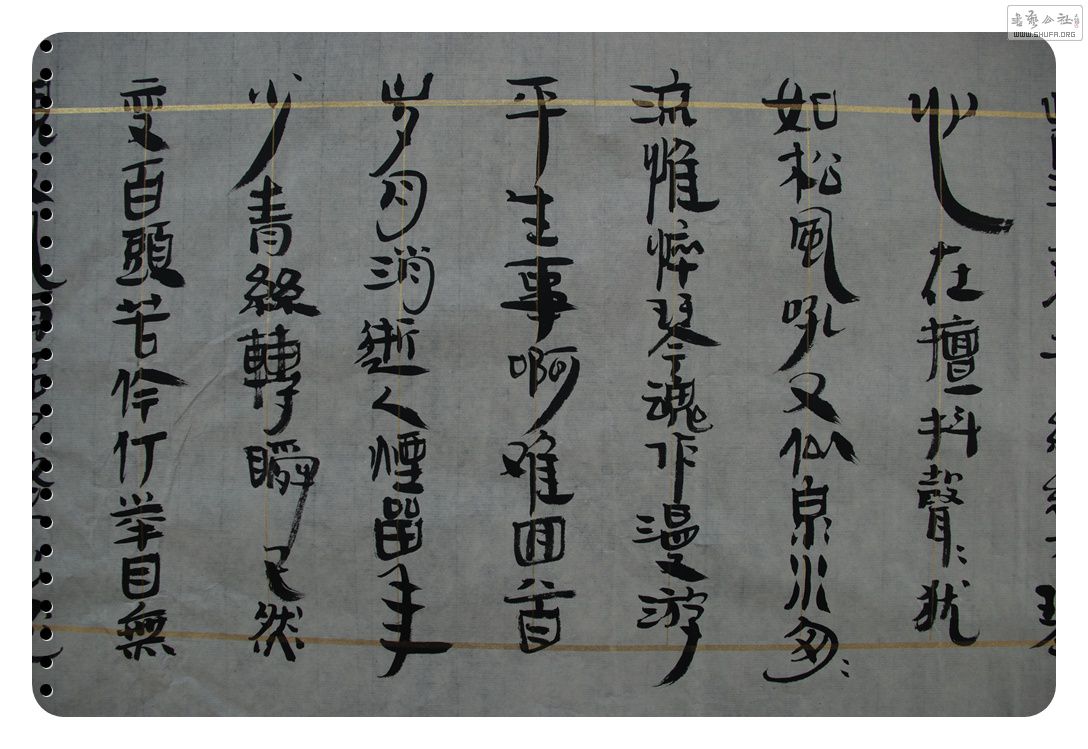 心在擅抖聲、犹
如松風吼又似泉水匆、
流惟悴琴魂作漫游
平生事啊难回首
岁月消逝人煙留
少青絲轉瞬已然
变百頭苦伶仃举目無
書藝公社
WWW.SHUFA.ORG